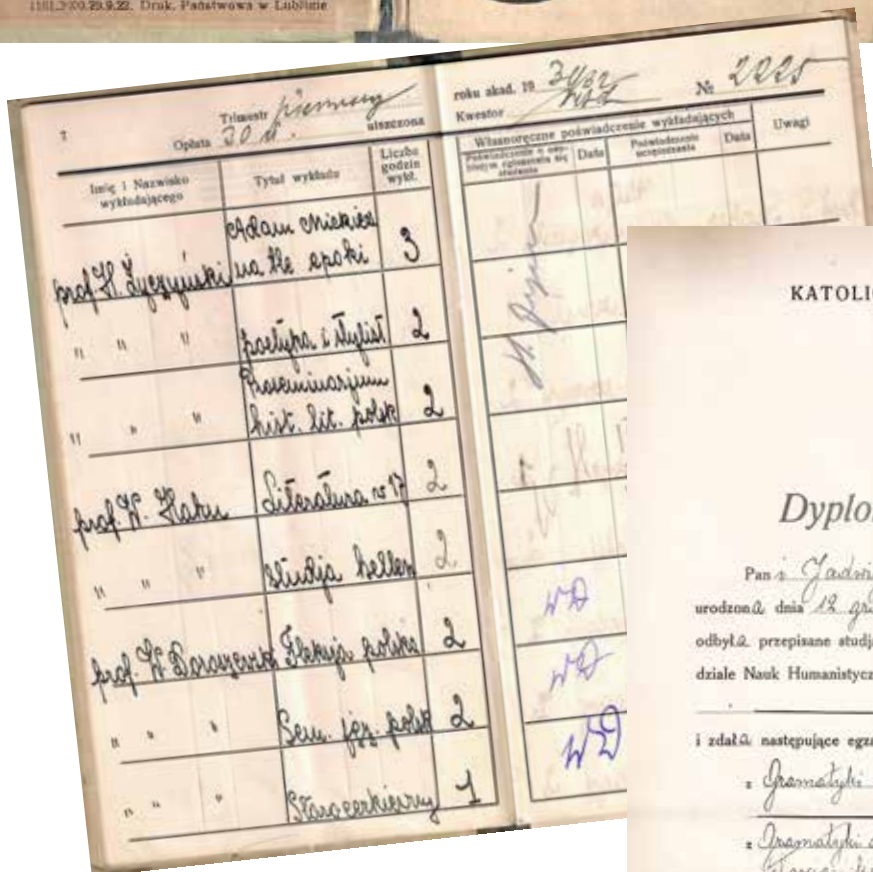 1161.3000.29.9.22. Druk. Państwowa w Lublinie
Trimestr pierwszy
Opłata 30 zł. uiszczona
Imię i Nazwisko wykładającego
Tytuł wykładu
Liczba godzin wykł.
prof. H. Życzyński
Adam Mickiewicz
na tle epoki 3
" " " poetyka i stylist 2
" " " Proseminarjum
hist. lit. polsk 2
prof. W. Hahn Literatura w 17 2
" " " Studja hellen 2
prof. W. Doroszewski Fleksja polska 2
" " " Sem. jęz. polsk 2
" " " Starocerkiewny 1
roku akad. 19 № 2225
Kwestor
Własnoręczne poświadczenie wykładających
Uwagi
Poświadczenie o osobistym zgłoszeniu się słuchacza
Data
Poświadczenie uczęszczania
Data
WD
WD
WD
KATOLI
Dyplo
Pani Jadwi
urodzona dnia 12 gru
odbyła przepisane studj
dziale Nauk Humanistycz
i zdała następujące egza
z Gramatyki
z Gramatyki